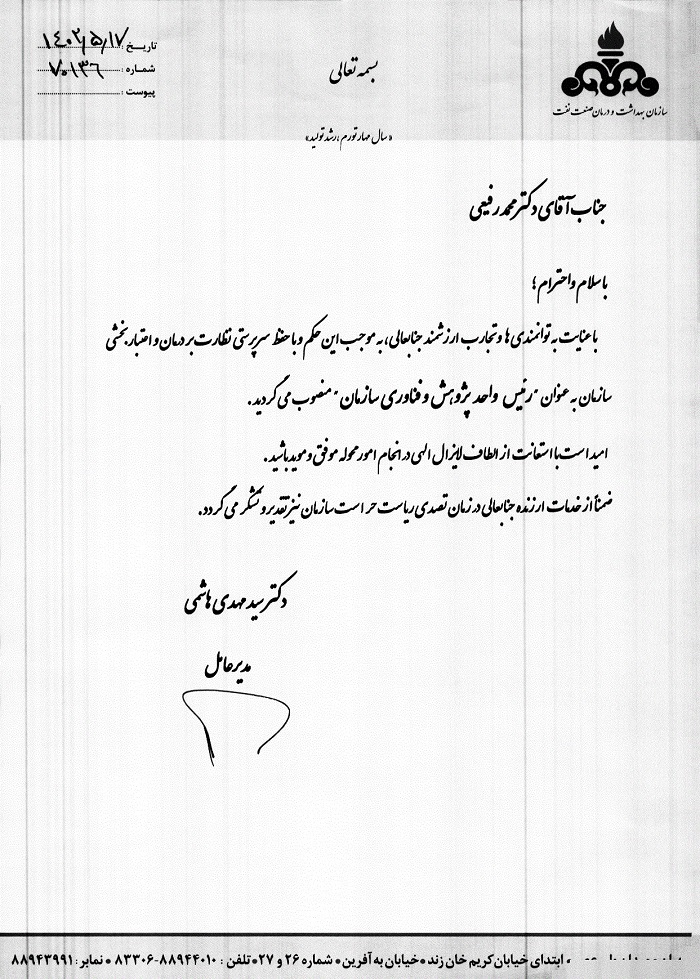 تاریخ: ۱۴۰۲٫۵٫۱۷
شماره: ۷۰۱۳۶
پیوست:
بسمه تعالی
سازمان بهداشت و درمان صنعت نفت
«سال مهار تورم، رشد تولید»
جناب آقای دکتر محمد رفیعی
با سلام و احترام؛
با عنایت به توانمندی ها و تجارب ارزشمند جنابعالی، به موجب این حکم و با حفظ سرپرستی نظارت بر درمان و اعتبار بخشی
سازمان به عنوان "رئیس واحد پژوهش و فناوری سازمان" منصوب می گردید.
امید است با استعانت از الطاف لایزال الهی در انجام امور محوله موفق و موید باشید.
ضمناً از خدمات ارزنده جنابعالی در زمان تصدی ریاست حراست سازمان نیز تقدیر و تشکر می گردد.
دکتر سید مهدی هاشمی
مدیر عامل
ابتدای خیابان کریم خان زند • خیابان به آفرین • شماره ۲۶ و ۲۷ • تلفن : ۸۸۹۴۴۰۱۰-۸۳۳۰۶ • نمابر: ۸۸۹۴۳۹۹۱